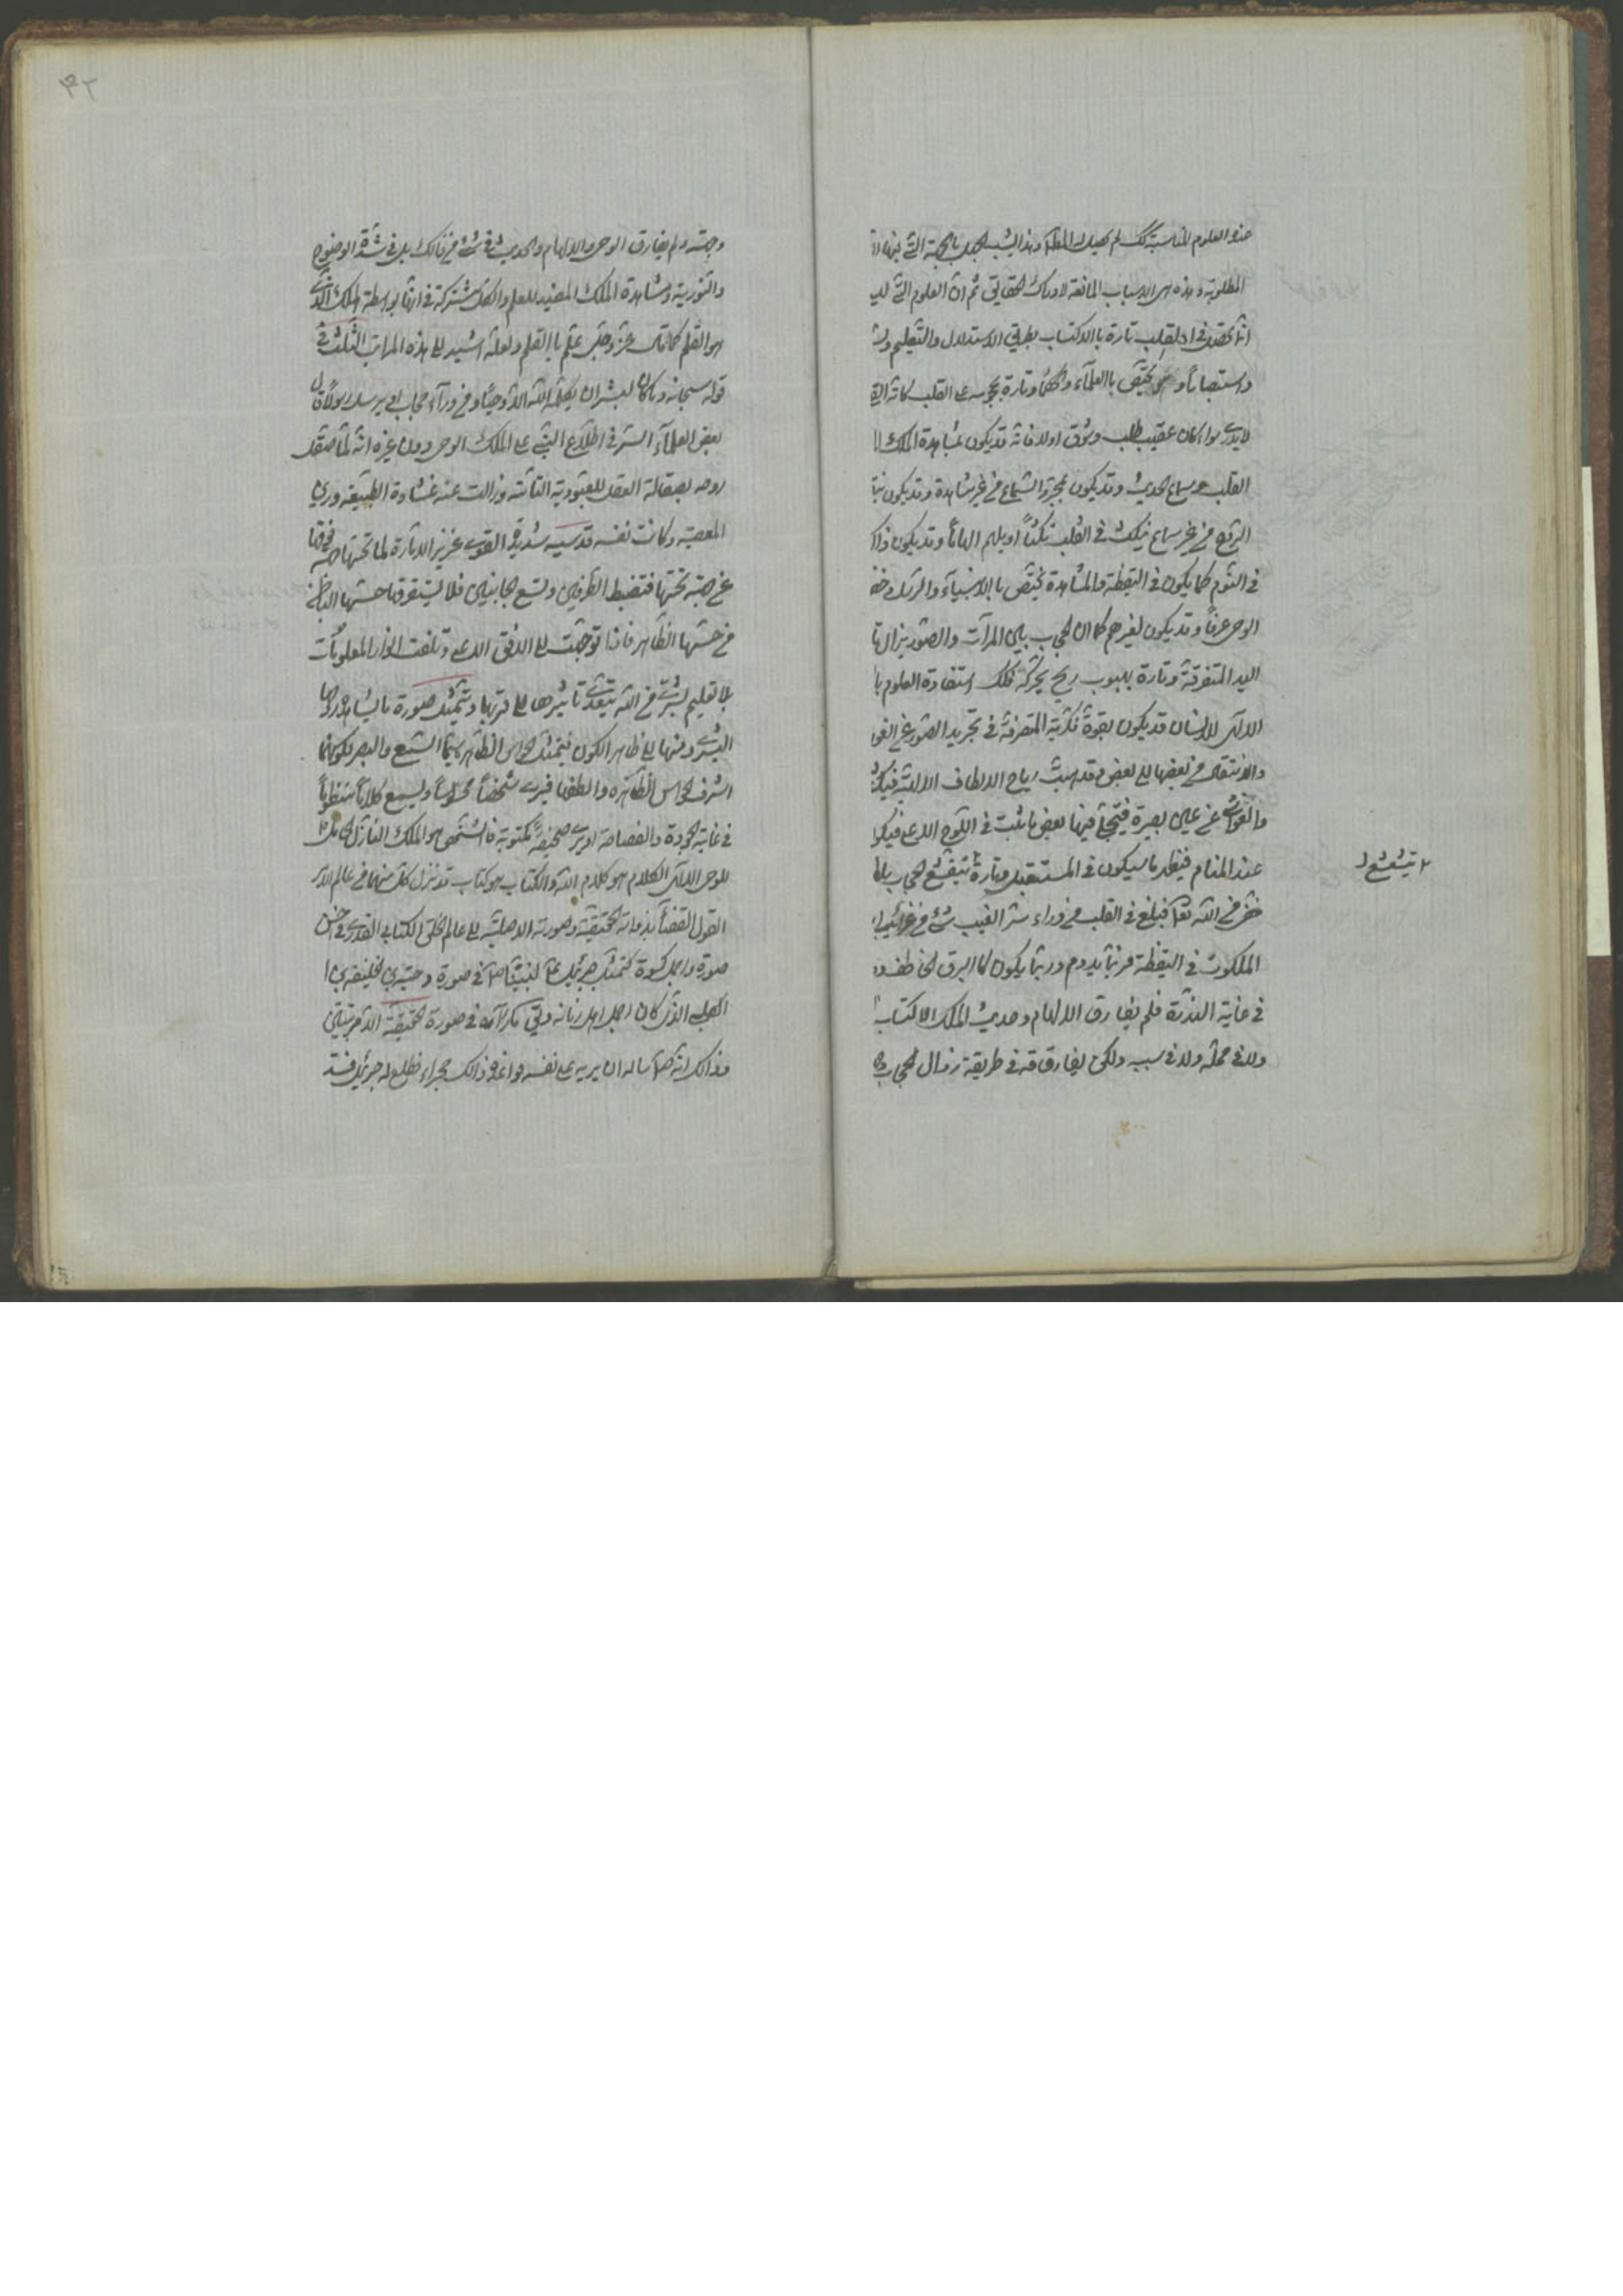 هذه العلوم المناسبة كك لم يحصل له المطلوب وهذا بسبب الجهل بالجهة التي منها
المطلوبة وهذه هي الاسباب المانعة لادراك الحقايق ثم ان العلوم التي ليـ
انما تحصل في القلب تارة بالاكتساب بطريق الاستدلال والتعليم ويسـ
واستبصاراً ويختص بالعلماء والحكماء وتارة بهجومه على القلب كانه القـ
لا يدرى سواء كان عقيب طلب وشوق اولا فانه قد يكون بمشاهدة الملك ا
القلب وسماع الحديث وقد يكون بمجرد السماع من غير مشاهدة وقد يكون
الروع من غير سماع ينكت في القلب نكتاً او يلهم الهاماً وقد يكون ذلك
في النوم كما يكون في اليقظة والمشاهدة تختص بالانبياء والرسل
الوحي عرفاً وقد يكون لغيرهم كما ان الحجاب بين المرآت والصور يزال تا
اليد المتفرقة وتارة بهبوب ريح يحركه فكك استفادة العلوم با
للانسان قد يكون بقوة فكرية المتصرفة في تجريد الصور عن الغوا
والانتقال من بعضها الى بعض وقد تهب رياح الالطاف الالهية فيكـ
والغواشي عن عين بصيرة فيتجلى فيها بعض ما يثبت في اللوح الاعلى فيكو
عند المنام فيظهر ما سيكون في المستقبل وتارة يتقشع الحجاب بلطـ
خفي من الله تعالى فيلمع في القلب من وراء ستر الغيب شيء من غرائب ا
الملكوت في اليقظة فربما يدوم وربما يكون كالبرق الخاطف ود
في غاية الندرة فلم يفارق الالهام وحديث الملك الاكتساب
ولا في محله ولا في سببه ولكن يفارقه في طريقة زوال الحجاب
يتقشع
٤٢
وجهته ولم يفارق الوحي والالهام والحديث في شيء من ذلك بل في شدة الوضوح
والنورية ومشاهدة الملك المفيد للعلم والكل مشتركة في انها بواسطة الملك الذي
هو القلم كما قال عز وجل علم بالقلم ولعله اشير الى هذه المراتب الثلث في
قوله سبحانه وما كان لبشر ان يكلمه الله الا وحياً او من ورآء حجاب او يرسل رسولاً قال
بعض العلمآء السر في اطلاع النبي على الملك الوحي دون غيره انه لما صقل
روحه بصقالة العقل للعبودية التامة وزالت عنه غشاوة الطبيعة ورين
المعصية وكانت نفسه قدسية شديدة القوى غزيز الانارة لما تحتها
عن جهة تحتها فتضبط الطرفين وتسع الجانبين فلا يستغرقها حسها الباطن
من حسها الظاهر فاذا توجهت الى الافق الاعلى وتلقت انوار المعلومات
بلا تعليم بشري من الله يتعدى تأثيرها الى قويها وتتمثل صورة ما يشاهدها
البشري ومنها الى ظاهر الكون فيتمثل للحواس الظاهر سيما السمع والبصر لكونهما
اشرف الحواس الظاهره والطفها فيرى شخصاً محسوساً ويسمع كلاماً منظوماً
في غاية الجودة والفصاحة او يرى صحيفة مكتوبة فالشخص هو الملك النازل الحامل
للوحي الالهي والكلام هو كلام الله والكتاب هو كتابه قد نزل كل منهما من عالم الامر
القول القضائي بذاته الحقيقة وصورته الاصلية الى عالم الخلق الكتابي القدري في احسن
صورة واجمل كسوة كتمثل جبرئيل ع لنبينا ص في صورة دحية بن خليفة
الكلبي الذي كان اجمل اهل زمانه وقيل ما رآه في صورة الحقيقة الا مرتين
وذلك انه ص سأله ان يريه على نفسه فواعده ذلك بحراء فطلع له جبرئيل فسد